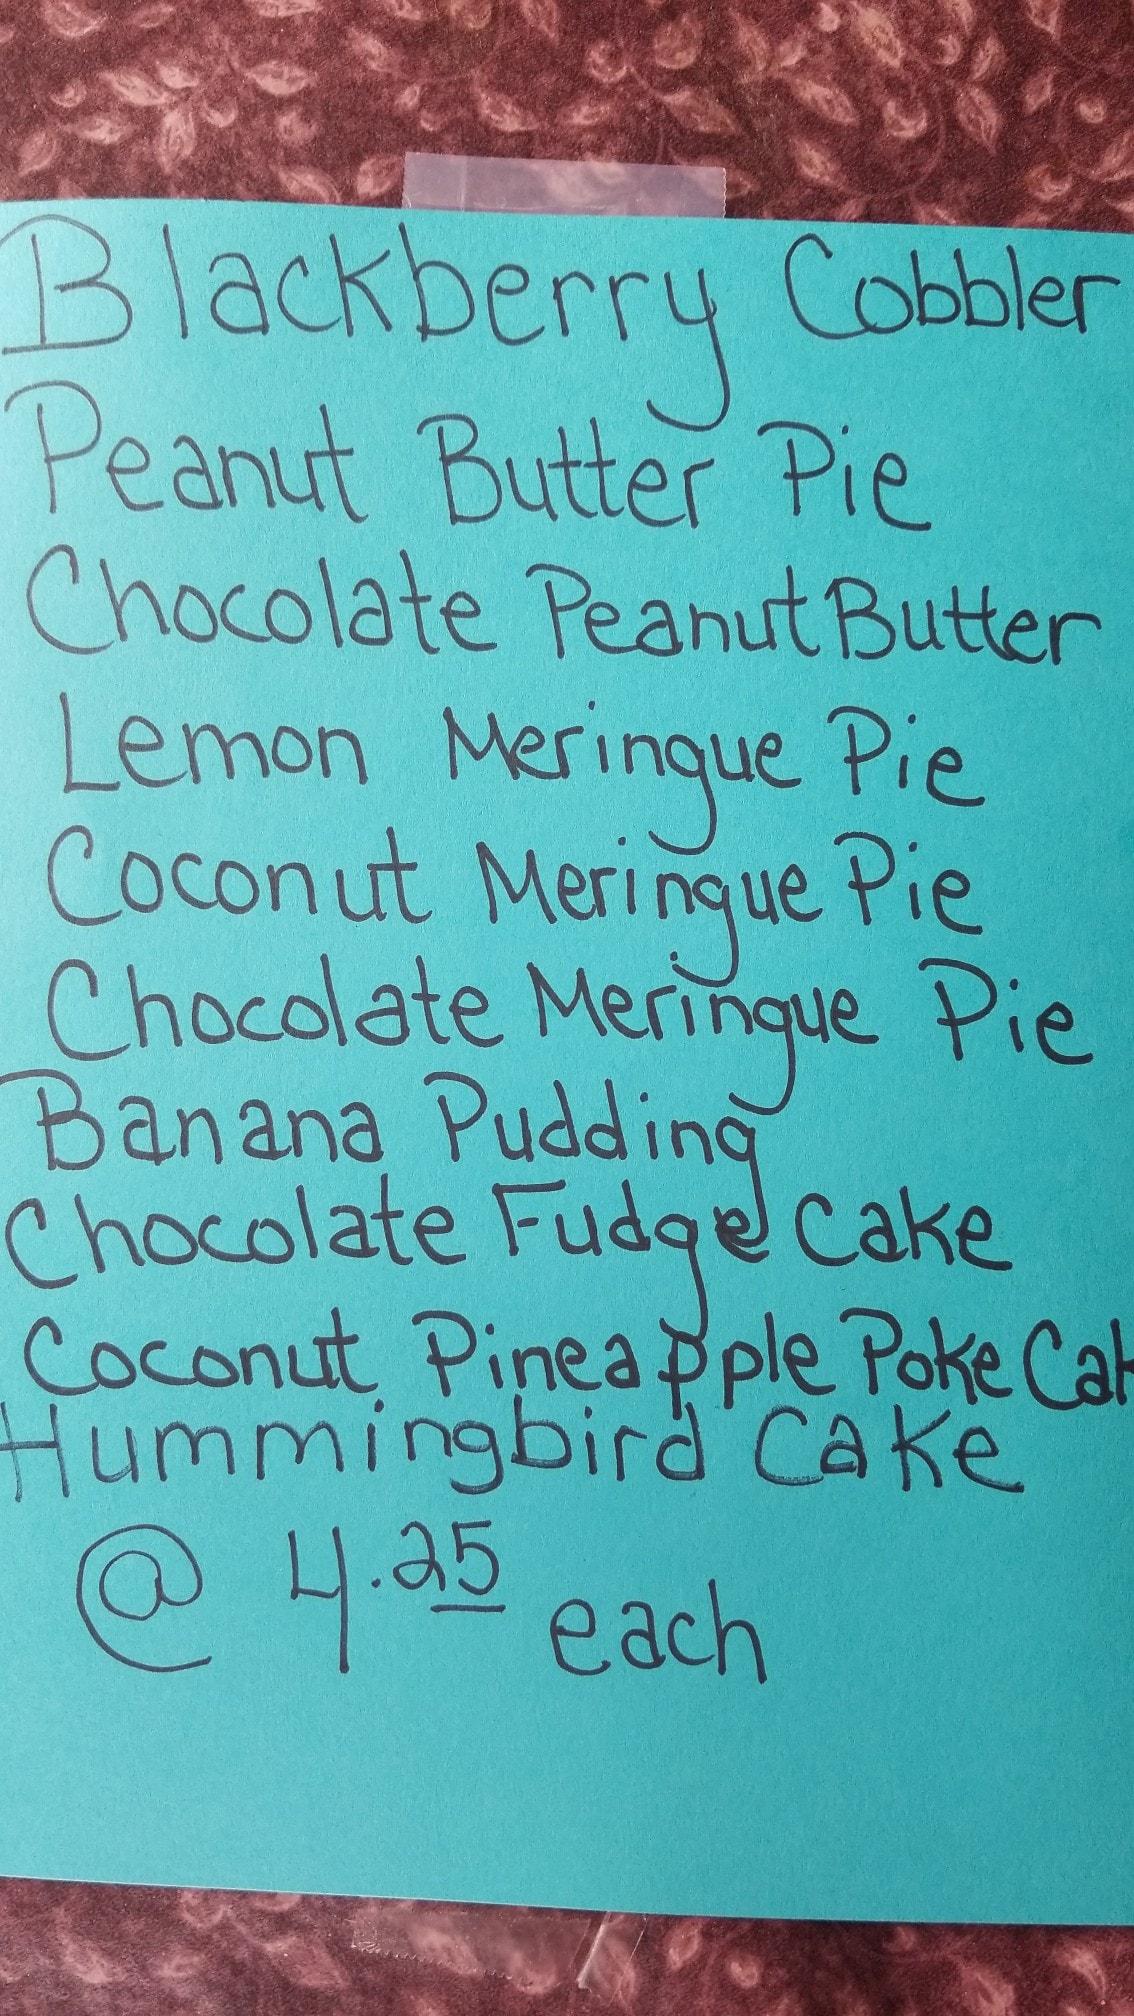 Blackberry Cobbler
Peanut Butter Pie
Chocolate Peanut Butter
Lemon Meringue Pie
Coconut Meringue Pie
Chocolate Meringue Pie
Banana Pudding
Chocolate Fudge Cake
Coconut Pineapple Poke Cak
Hummingbird Cake
@ 4.25 each